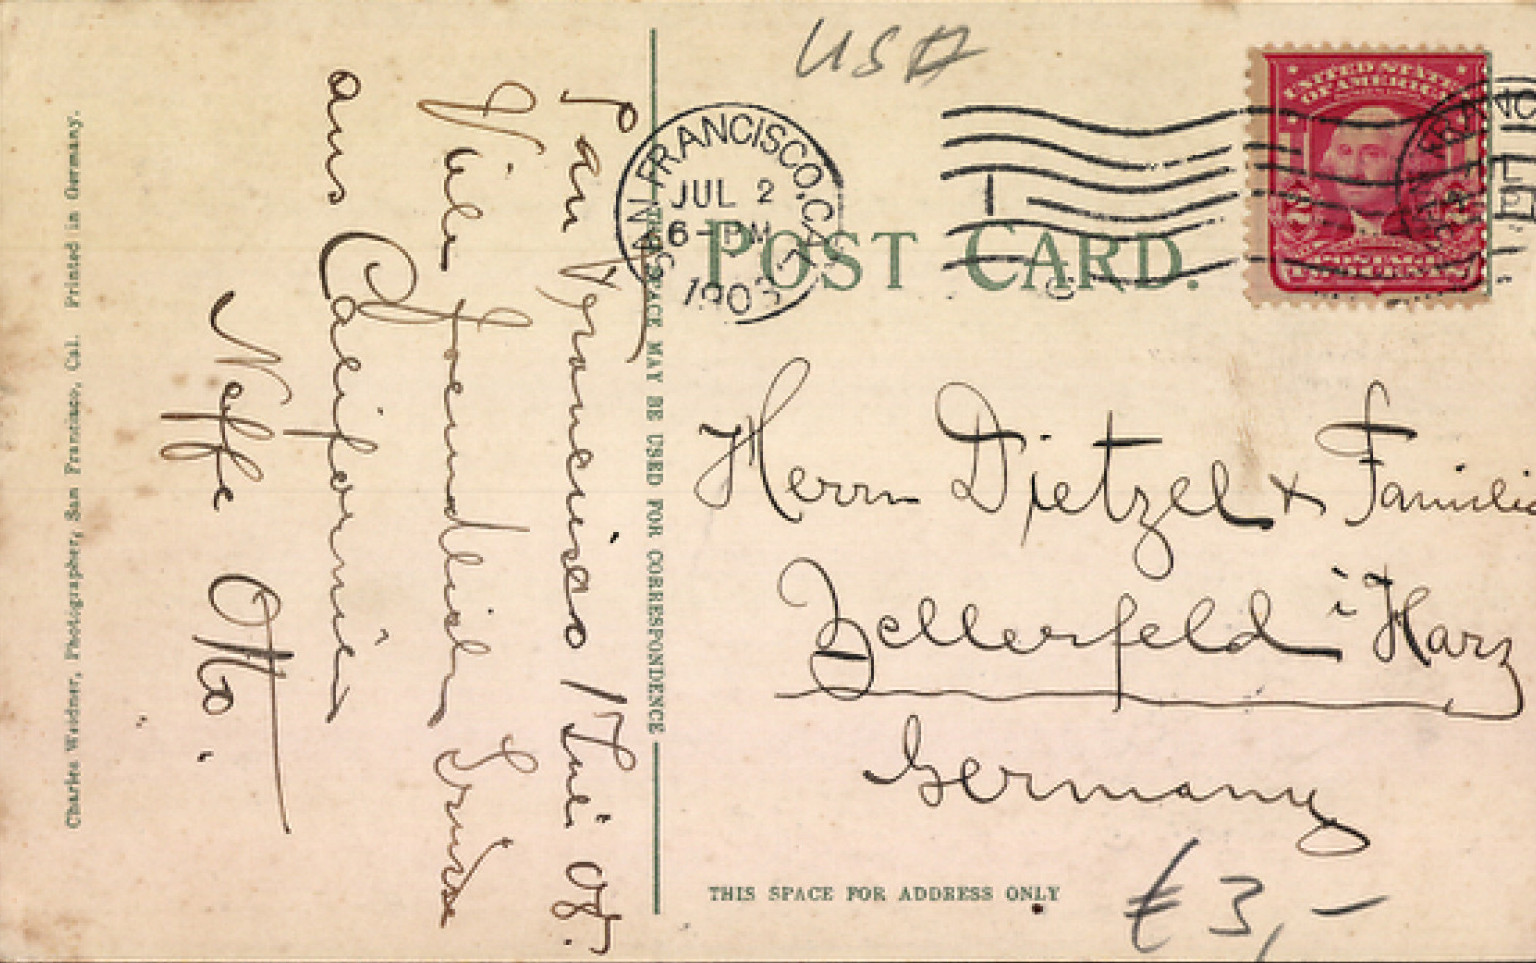 USA
SAN FRANCISCO, CAL.
JUL 2
6-PM
1903
UNITED STATES
OF AMERICA
2 2
POSTAGE
TWO CENTS
POST CARD.
THIS SPACE MAY BE USED FOR CORRESPONDENCE
San Francisco 1 Juli 08.
Viele freundliche Grüsse
aus Californien
Neffe Otto.
Herrn Dietzel & Familie
Zellerfeld i Harz
Germany
THIS SPACE FOR ADDRESS ONLY
€ 3,-
Charles Weidner, Photographer, San Francisco, Cal. Printed in Germany.